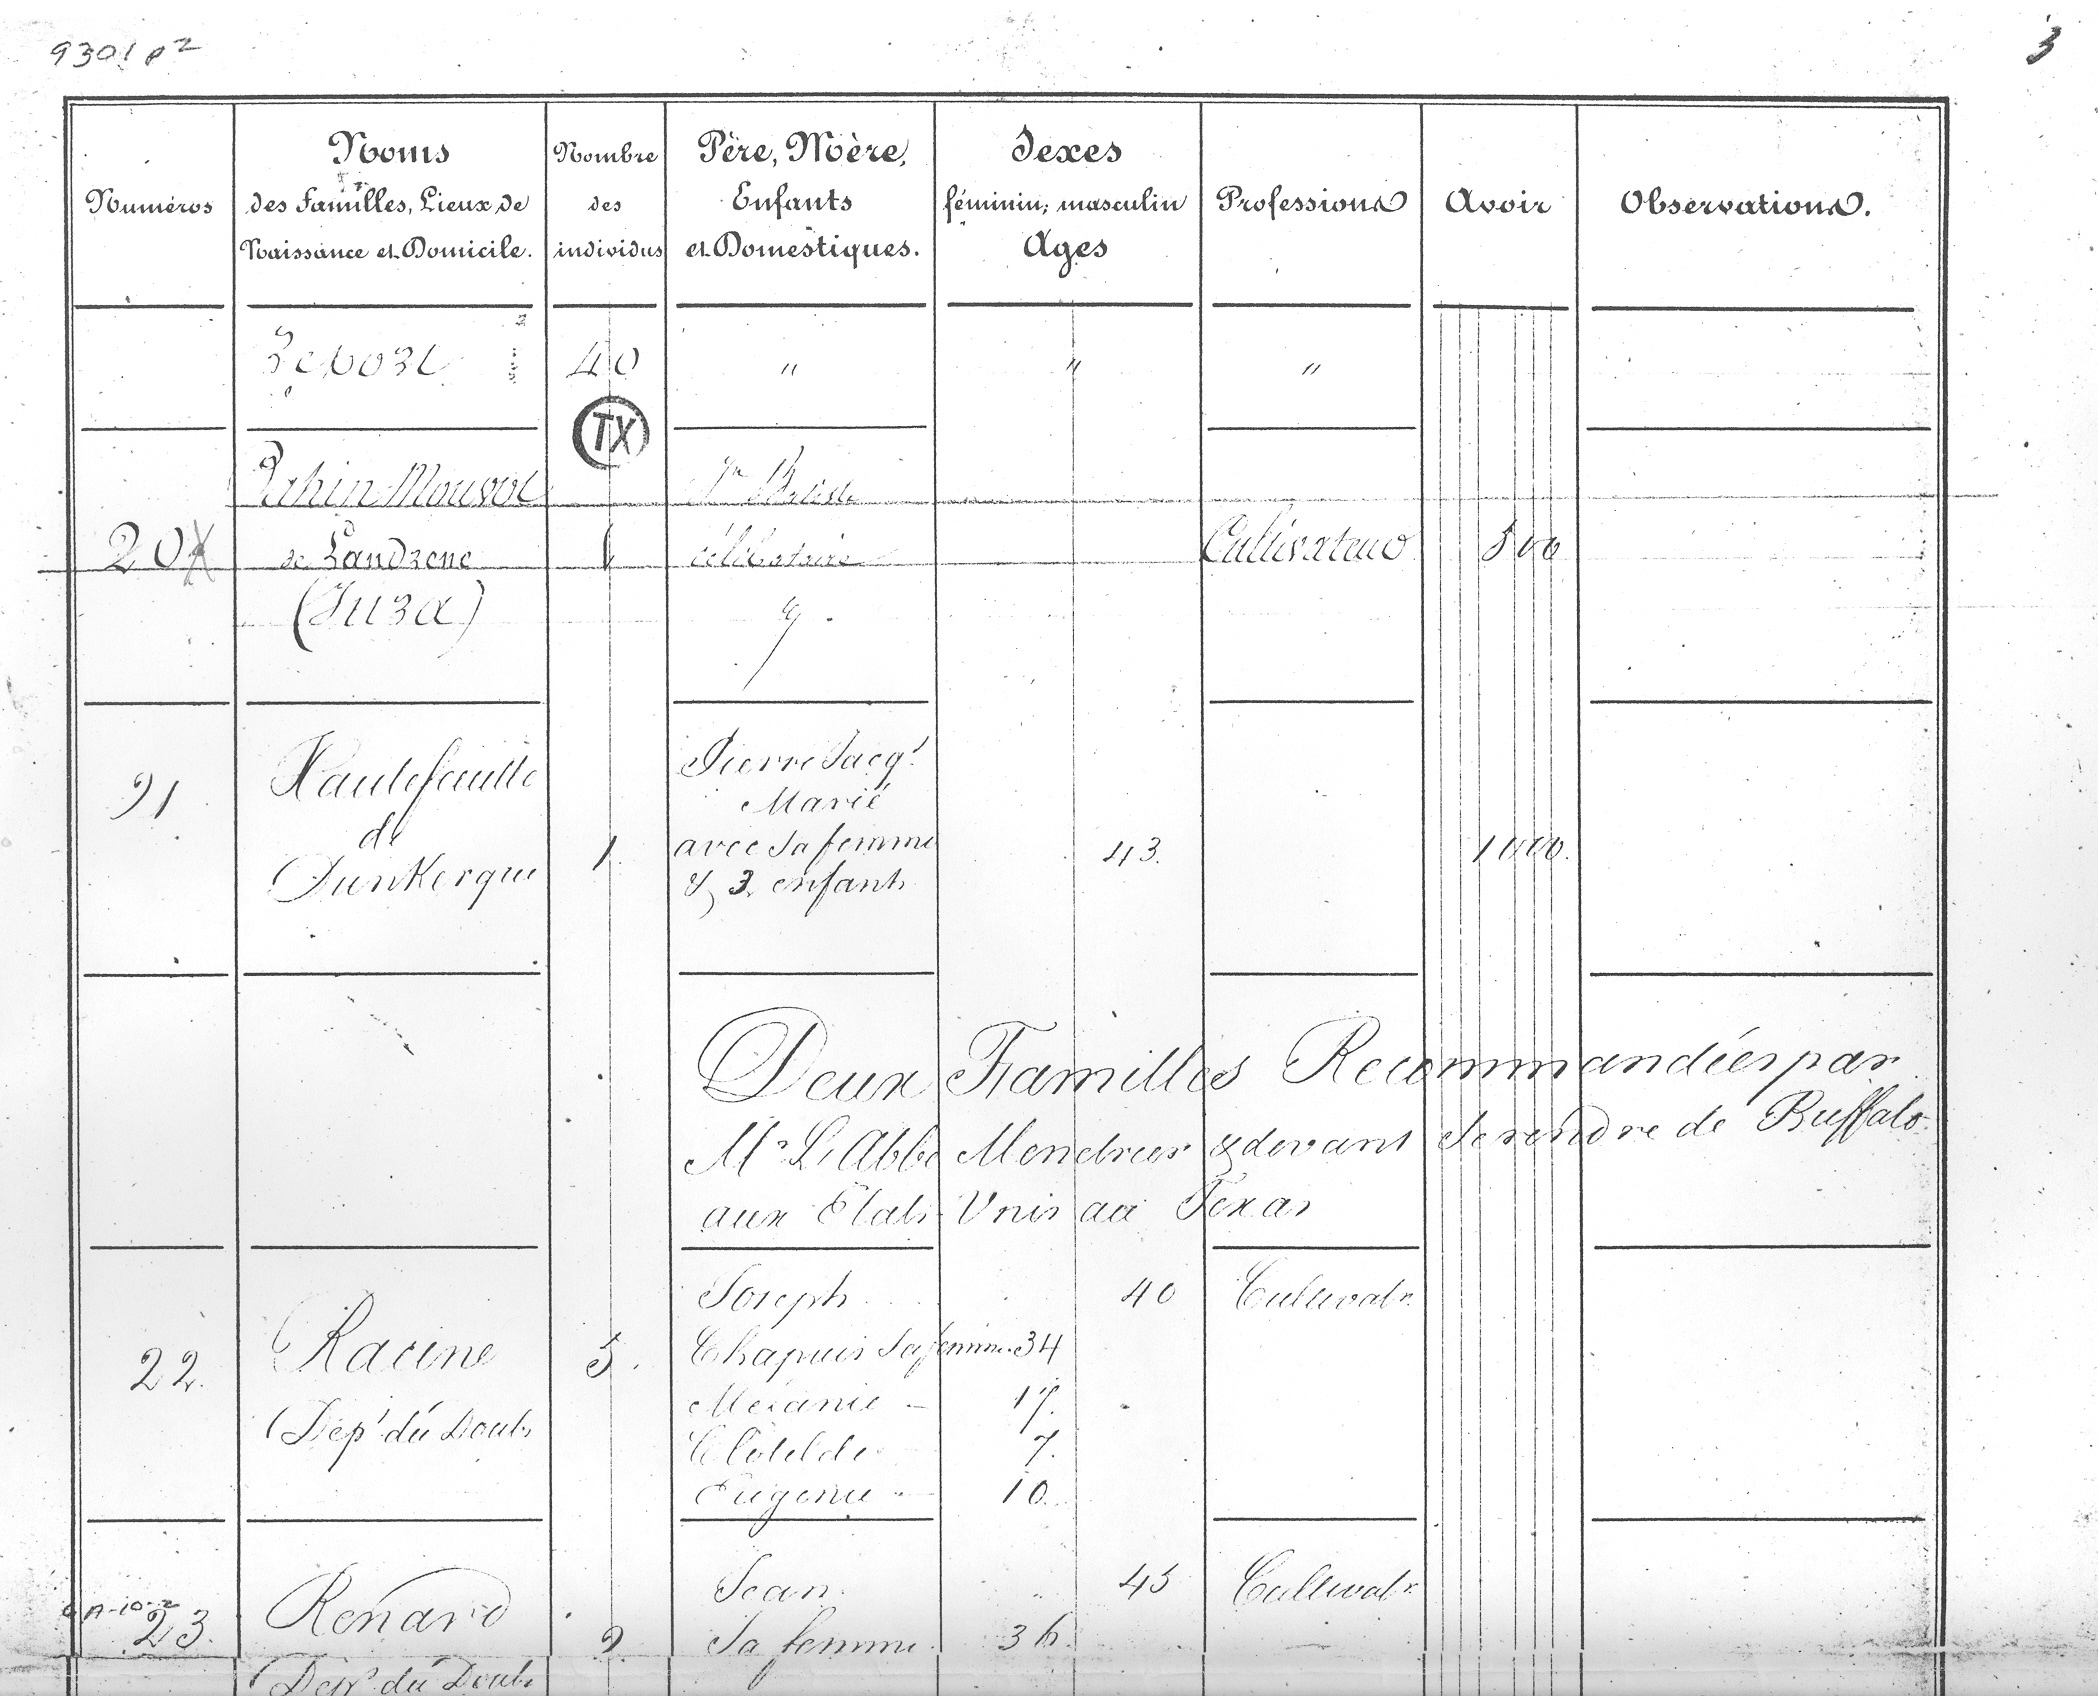 9301 p2
3
Numéros
Noms
des Familles, Lieux de
Naissance et Domicile.
Nombre
des
individus
Père, Mère,
Enfants
et Domestiques.
Sexes
féminin; masculin
Ages
Professions
Avoir
Observations.
Report 40 " " "
TX
20
de Landzone
(Jura)
1
célibataire
Cultivateur
500
21
Hautefeuille
de
Dunkerque
1
Pierre Jacq.
Marié
avec sa femme
& 3 enfants
43
1000
Deux Familles Recommandées par
Mr L'Abbé & devant se rendre de Buffalo
aux Etats Unis au Texas
22.
Racine
Dept du Doubs
5
Joseph 40 Cultivatr
Chapuis sa femme 34
Mélanie 17
Clotilde 7
Eugenie 10
A-10-2
23.
Renard
Dept du Doubs
Jean 45 Cultivatr
Sa femme 36